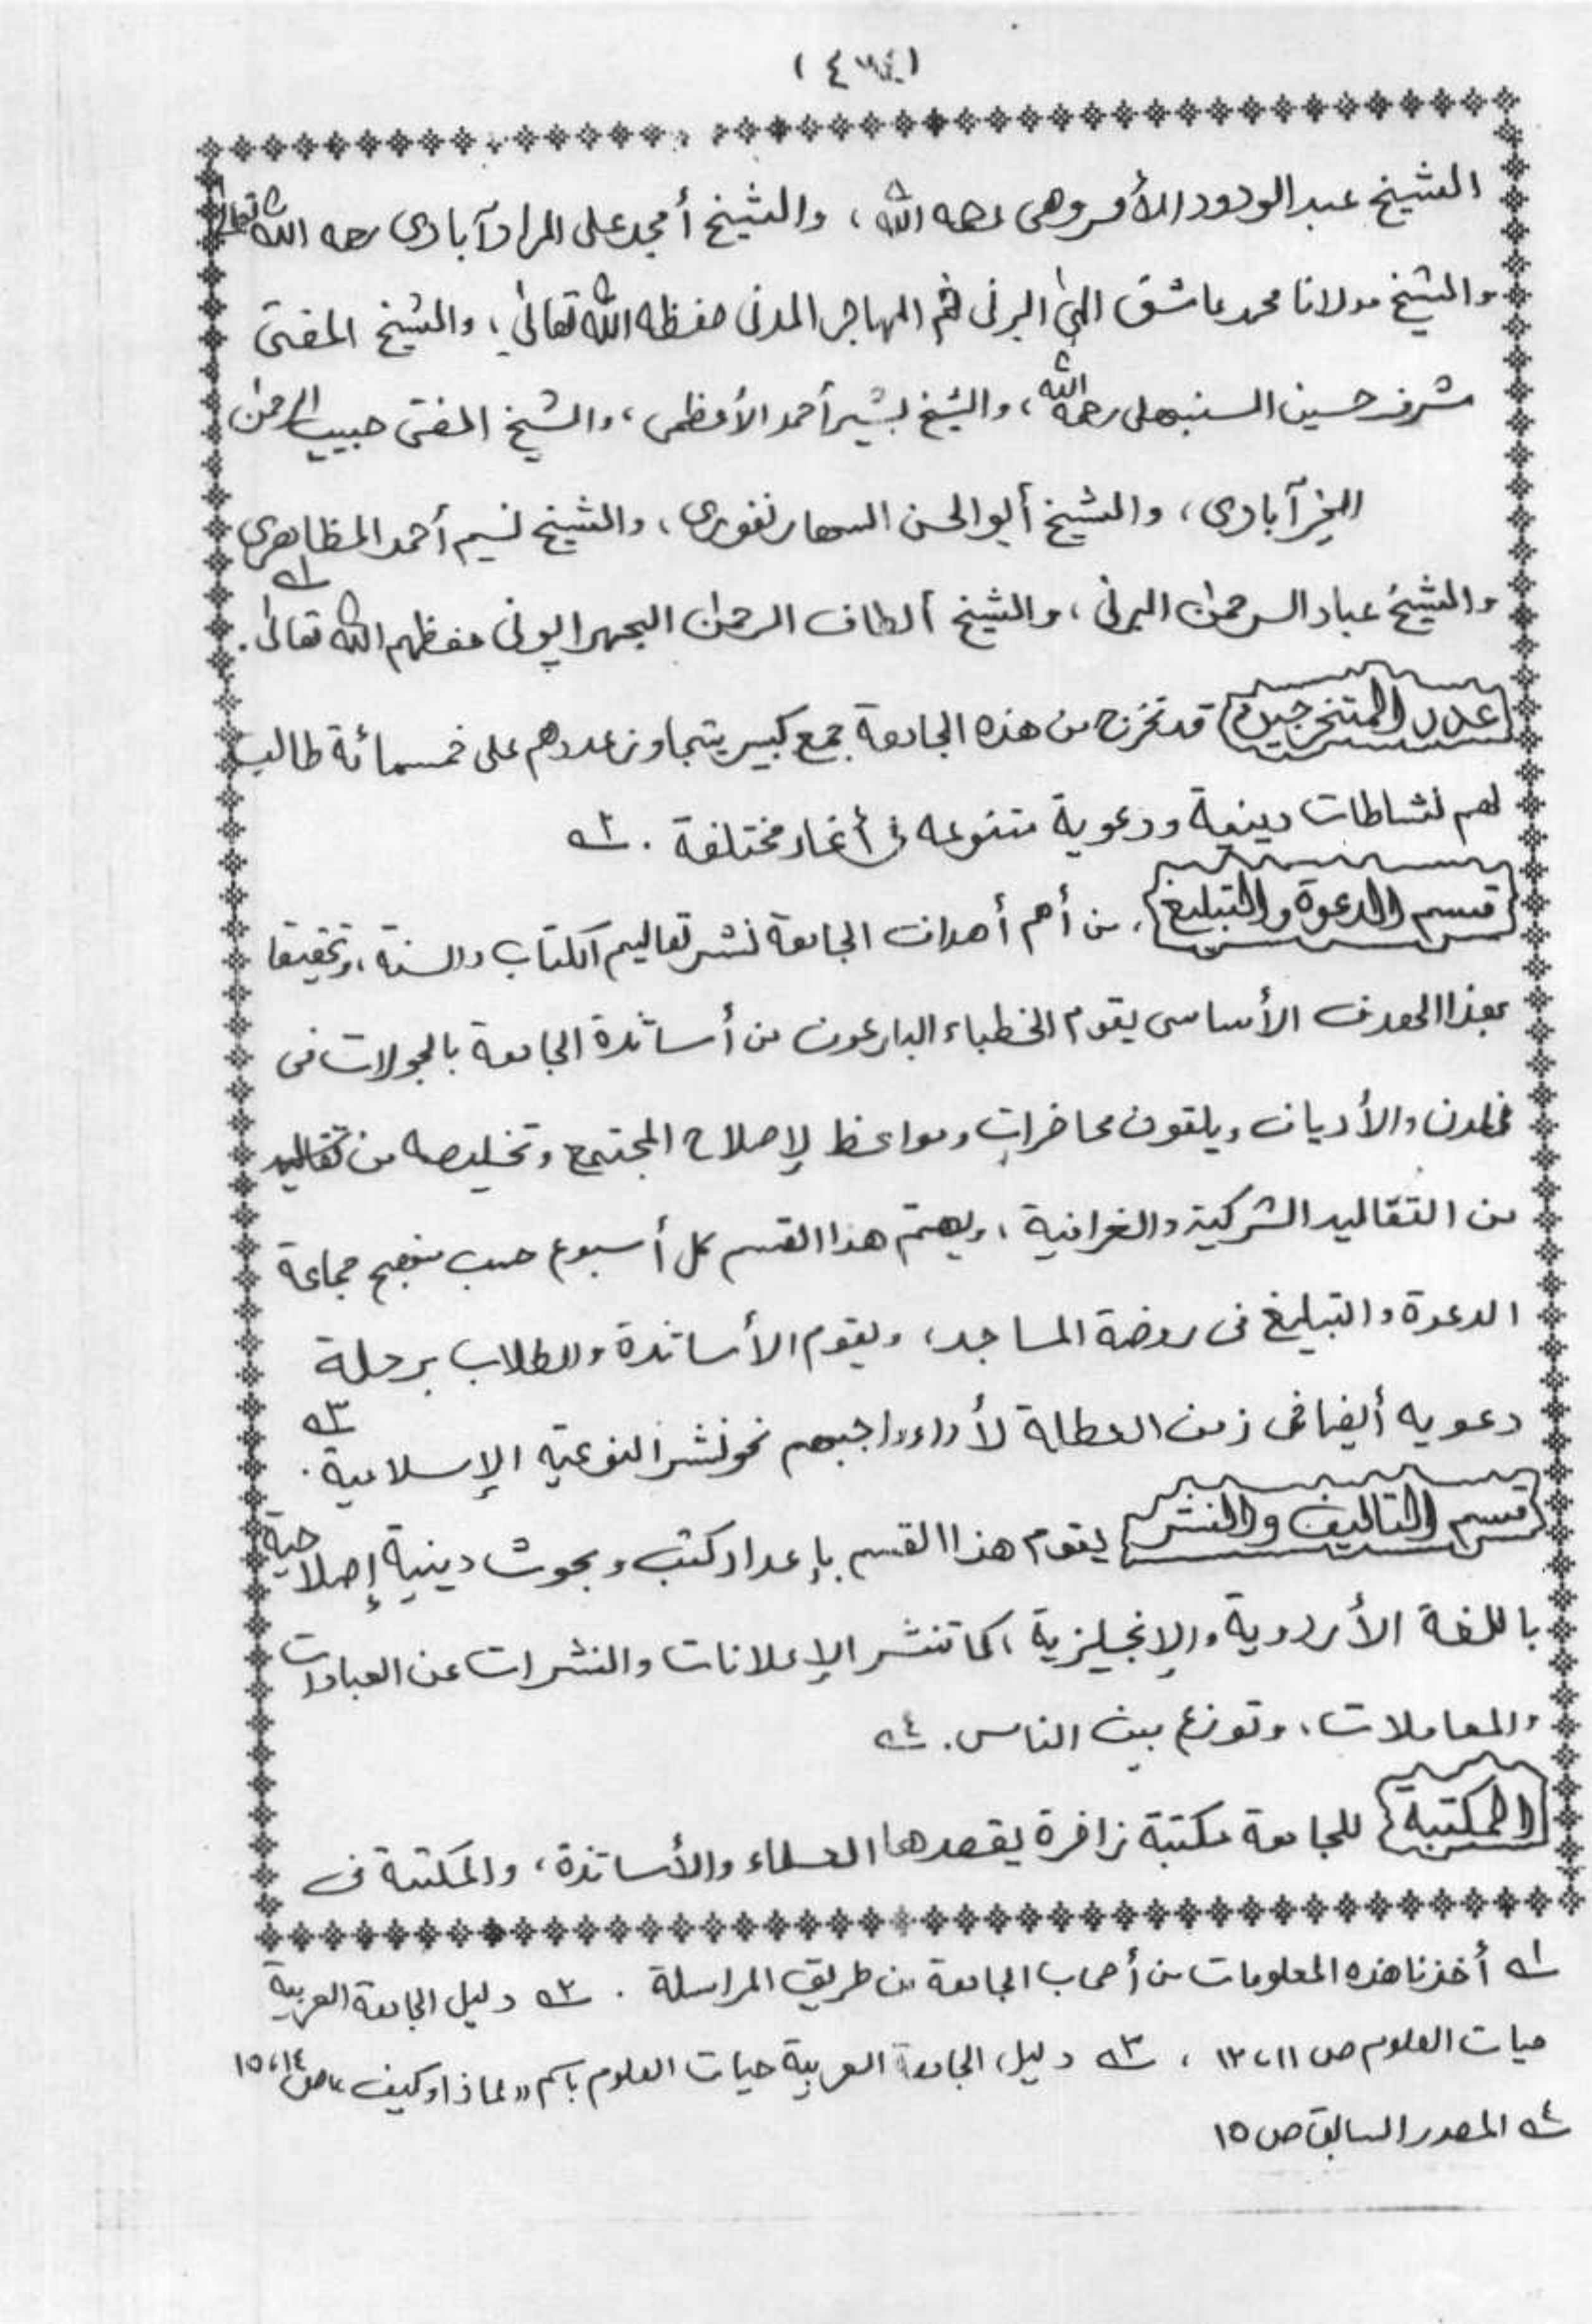 الشيخ عبد الودود الأمروهى رحمه الله ، والشيخ أمجد على المرادآبادى رحمه الله تعالى
والشيخ مولانا محمد عاشق الٰهى البرنى ثم المهاجر المدنى حفظه الله تعالىٰ ، والشيخ المفتى
شرف حسين السنبهلى رحمه الله ، والشيخ بشير أحمد الأعظمى ، والشيخ المفتى حبيب الرحمٰن
الخيرآبادى ، والشيخ أبو الحسن السهارنفورى ، والشيخ نسيم أحمد المظاهرى
والشيخ عباد الرحمٰن البرنى ، والشيخ ألطاف الرحمٰن البجهرايونى حفظهم الله تعالىٰ . ١ـه
عدد المتخرجين قد تخرج من هذه الجامعة جمع كبير يتجاوز عددهم على خمسمائة طالب
لهم نشاطات دينية ودعوية متنوعه فى أنحاء مختلفة . ٢ـه
قسم الدعوة والتبليغ . من أهم أهداف الجامعة نشر تعاليم الكتاب والسنة ، وتحقيقا
بهذا الهدف الأساسى يقوم الخطباء البارعون من أساتذة الجامعة بالجولات فى
المدن والأديان ويلقون محاضرات ومواعظ لإصلاح المجتمع وتخليصه من تقاليد
من التقاليد الشركية والخرافية ، ويهتم هذا القسم كل أسبوع حسب منهج جماعة
الدعوة والتبليغ فى روضة المساجد ، ويقوم الأساتذة والطلاب برحلة
دعويه أيضا فى زمن العطلة لأداء واجبهم نحو نشر النوعية الإسلامية . ٣ـه
قسم التاليف والنشر يقوم هذا القسم بإعداد كتب وبحوث دينية إصلاحية
باللغة الأردوية والإنجليزية ، كما تنشر الإعلانات والنشرات عن العبادات
والمعاملات ، وتوزع بين الناس . ٤ـه
المكتبة للجامعة مكتبة زافرة يقصدها العلماء والأساتذة ، والمكتبة فى
١ـه أخذنا هذه المعلومات من أصحاب الجامعة من طريق المراسلة . ٢ـه دليل الجامعة العربية
حيات العلوم ص ١١ ، ١٢ ، ٣ـه دليل الجامعة العربية حيات العلوم باسم «لماذا وكيف» ص ١٤ ، ١٥
٤ـه المصدر السابق ص ١٥